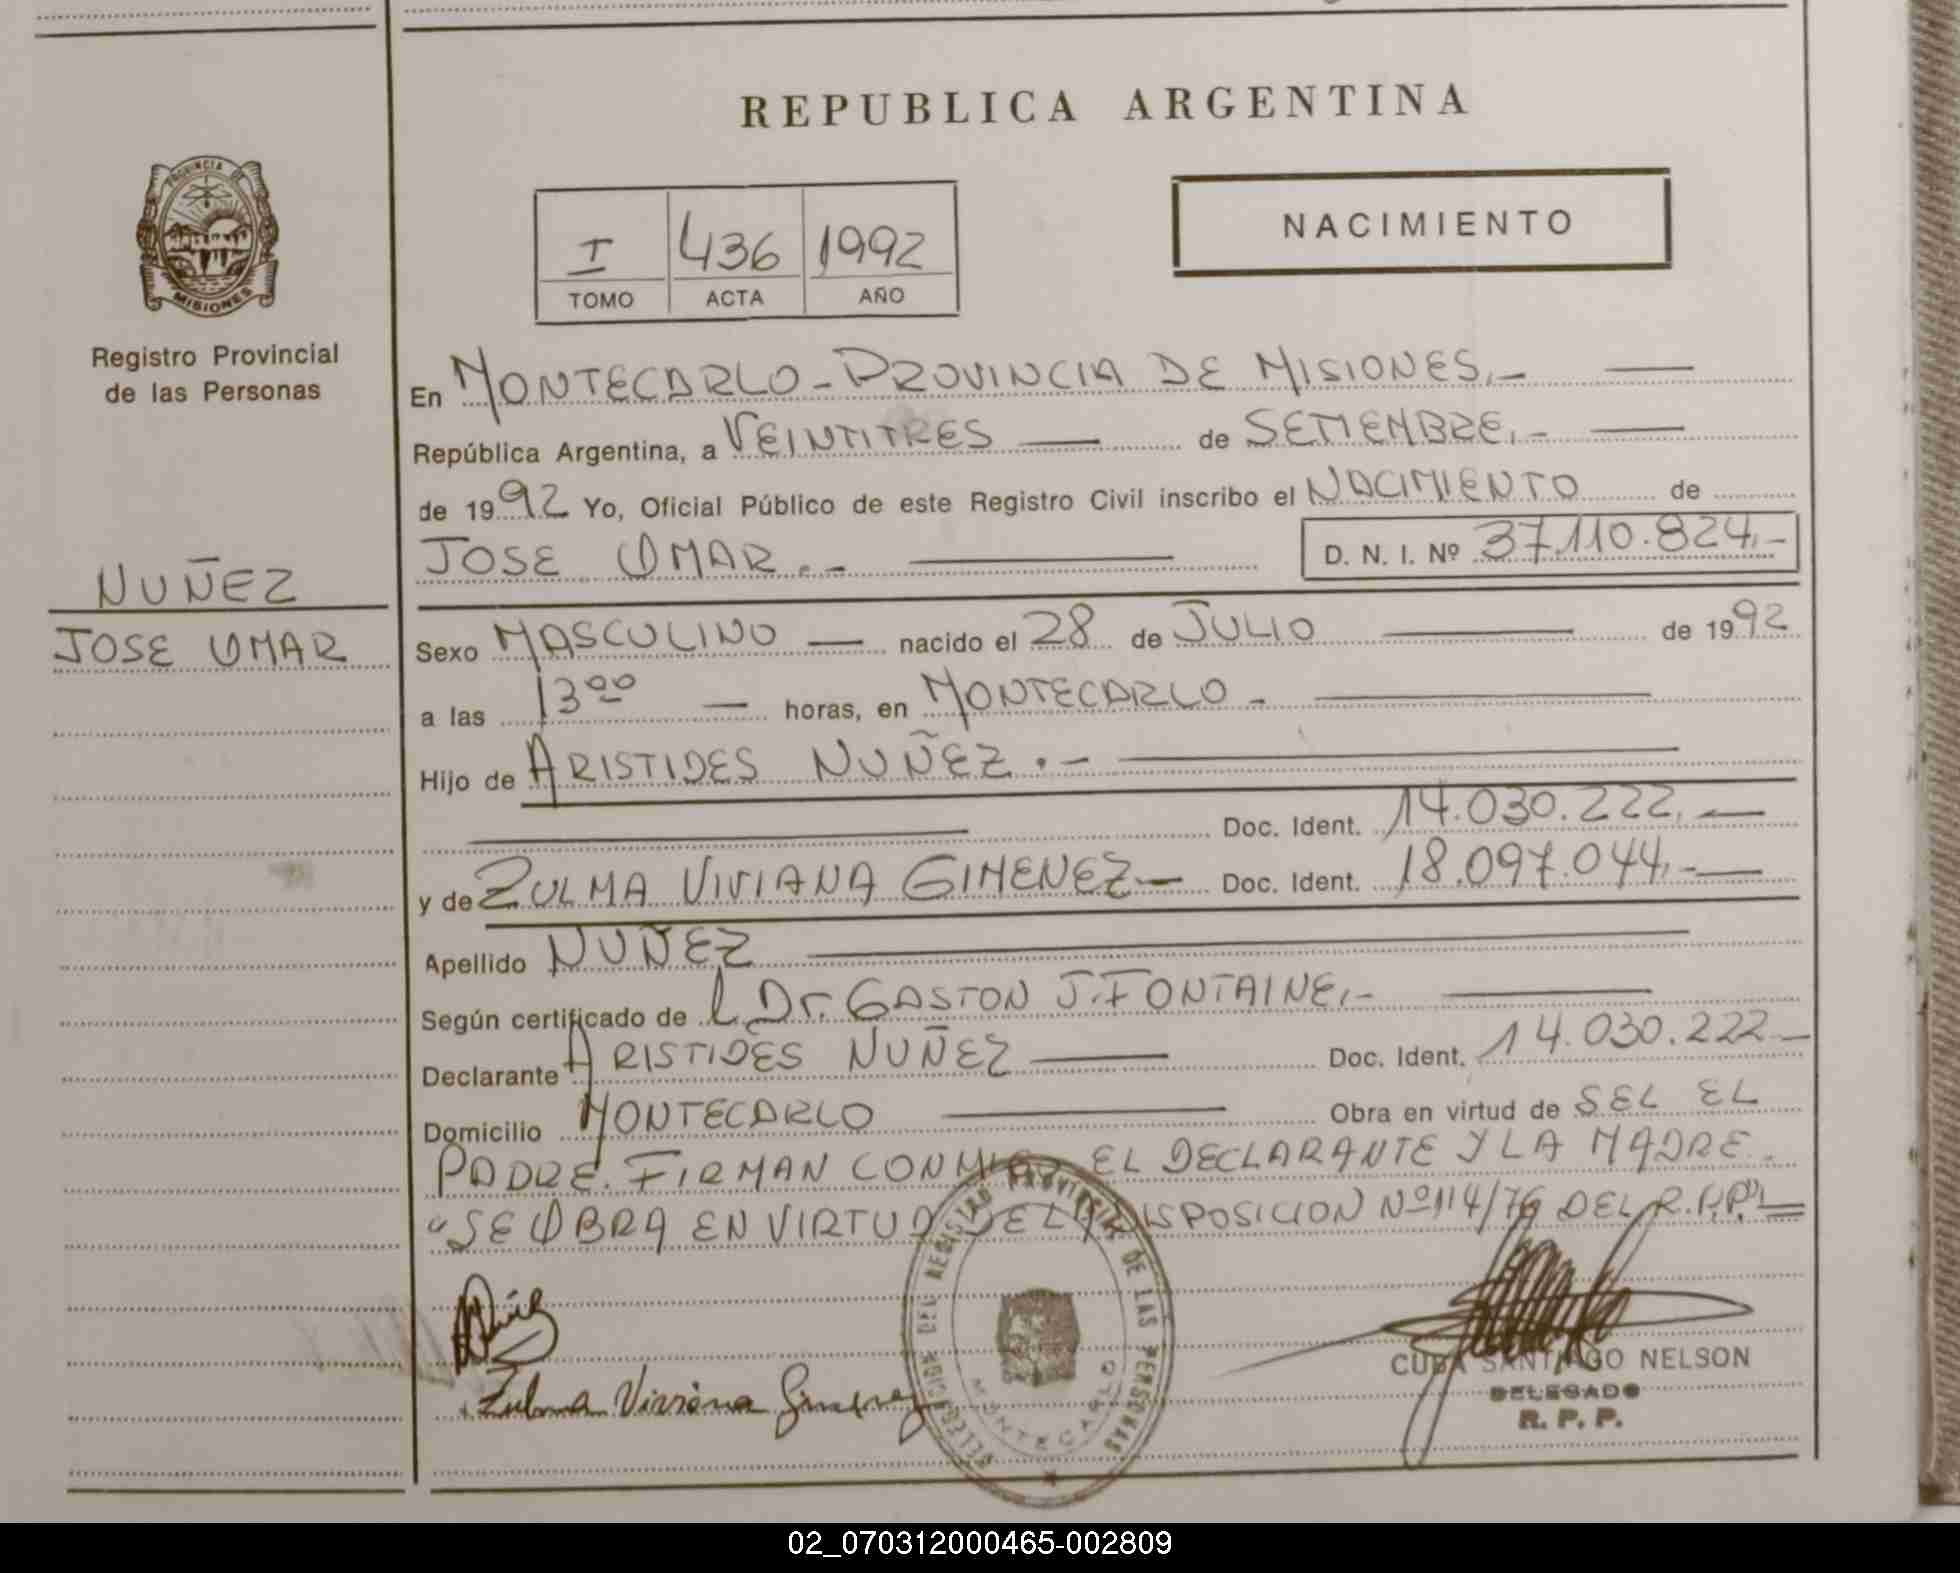 REPUBLICA ARGENTINA
PROVINCIA DE
MISIONES
Registro Provincial
de las Personas
NUÑEZ
JOSE OMAR
I 436 1992
TOMO ACTA AÑO
NACIMIENTO
En MONTECARLO - PROVINCIA DE MISIONES.-
República Argentina, a VEINTITRES de SETIEMBRE.-
de 1992 Yo, Oficial Público de este Registro Civil inscribo el NACIMIENTO de
JOSE OMAR.- D. N. I. Nº 37.110.824.-
Sexo MASCULINO nacido el 28 de JULIO de 1992
a las 13 00 horas, en MONTECARLO -
Hijo de ARISTIDES NUÑEZ.-
Doc. Ident. 14.030.222.
y de ZULMA VIVIANA GIMENEZ Doc. Ident. 18.097.044.-
Apellido NUÑEZ
Según certificado de Dr. GASTON J. FONTAINE.-
Declarante ARISTIDES NUÑEZ Doc. Ident. 14.030.222
Domicilio MONTECARLO Obra en virtud de SEL EL
PADRE. FIRMAN CONMIGO EL DECLARANTE Y LA MADRE.
"SE OBRA EN VIRTUD DE LA DISPOSICION Nº 114/76 DEL R.P.P."
Zulma Viviana Gimenez
DELEGACION DEL REGISTRO PROVINCIAL DE LAS PERSONAS
MONTECARLO
CUBA SANTIAGO NELSON
DELEGADO
R. P. P.
02_070312000465-002809